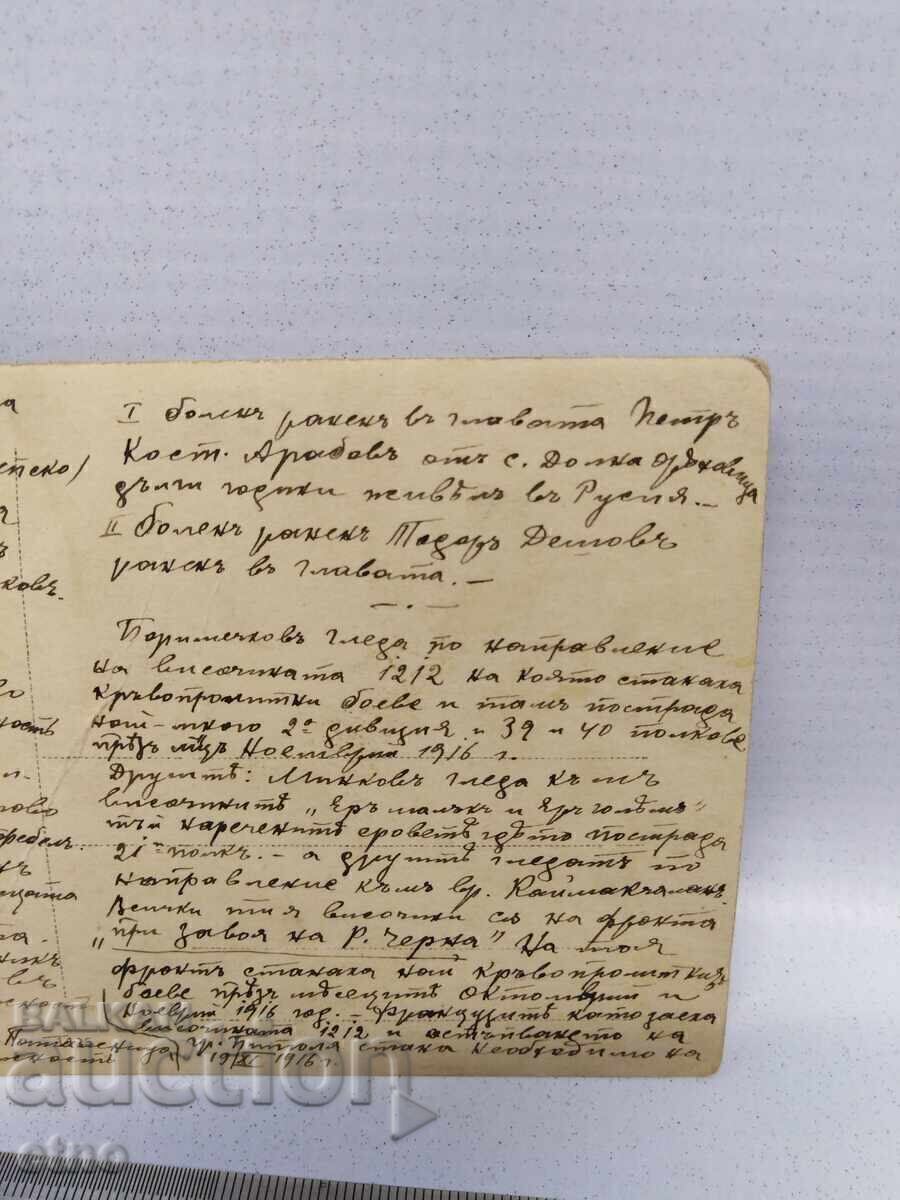 I боленъ раненъ въ главата Петръ
Кост. Арабовъ отъ с. Долна Орѣховица
дълги години живѣлъ въ Русия.—
II боленъ раненъ Тодоръ Дешовъ
раненъ въ главата.—
Поримечковъ гледа по направление
на височината 1212 на която станаха
кръвопролитни боеве и тамъ пострада
най-много 2а дивизия и 39 и 40 полкове
прѣзъ м-цъ Ноемврий 1916 г.
Другитѣ: Минковъ гледа към
височинитѣ „Еръ малъкъ и Еръ голѣмъ"
тъй нареченитѣ ероветѣ гдѣто пострада
21 полкъ.— а другитѣ гледатъ по
направление към вр. Каймакчаланъ.
Всички тия височини сѫ на фронта
„при Завоя на Р. Черна" На тоя
фронтъ станаха най кръвопролитни
боеве прѣзъ мѣсецитѣ Октомврий и
Ноемврий 1916 год.— Французитѣ като заеха
височината 1212 и отстѫпването на
гр. Битоля стана необходимо на
19/XI 1916 г.
ковъ.
ность
BALKAN
auction
etno